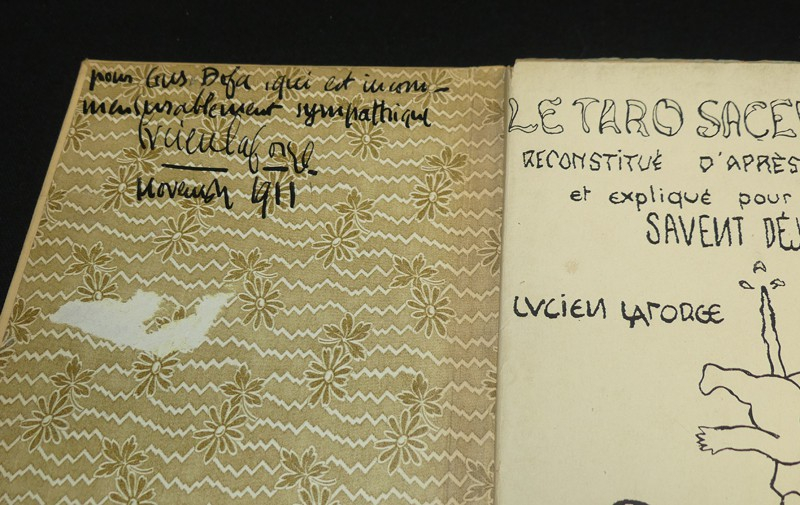 pour Gus Bofa, qui est incom-
mensurablement sympathique
Lucien Laforge.
novembre 1911
LE TARO SACE
RECONSTITUÉ D'APRÈS
et expliqué pour
SAVENT DÉJ
LUCIEN LAFORGE